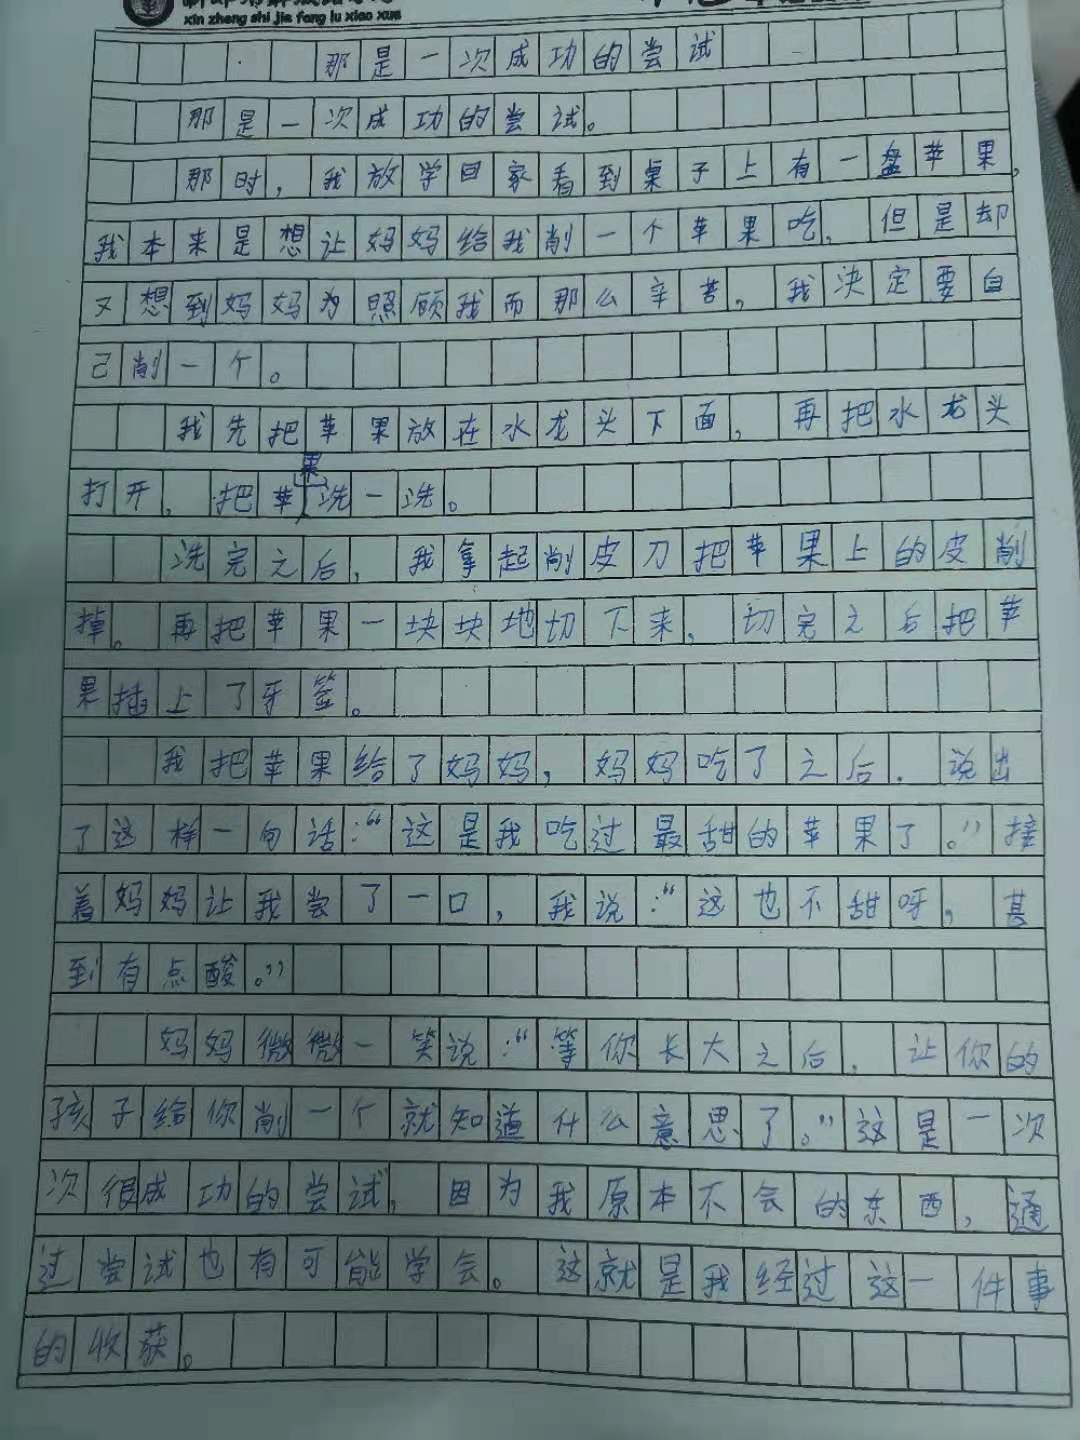 xin zheng shi jie fang lu xiao xue
那是一次成功的尝试
那是一次成功的尝试。
那时，我放学回家看到桌子上有一盘苹果，
我本来是想让妈妈给我削一个苹果吃，但是却
又想到妈妈为照顾我而那么辛苦，我决定要自
己削一个。
我先把苹果放在水龙头下面，再把水龙头
打开，把苹果洗一洗。
洗完之后，我拿起削皮刀把苹果上的皮削
掉。再把苹果一块块地切下来，切完之后把苹
果插上了牙签。
我把苹果给了妈妈，妈妈吃了之后，说出
了这样一句话：“这是我吃过最甜的苹果了。”接
着妈妈让我尝了一口，我说：“这也不甜呀，甚
到有点酸。”
妈妈微微一笑说：“等你长大之后，让你的
孩子给你削一个就知道什么意思了。”这是一次
次很成功的尝试，因为我原本不会的东西，通
过尝试也有可能学会。这就是我经过这一件事
的收获。